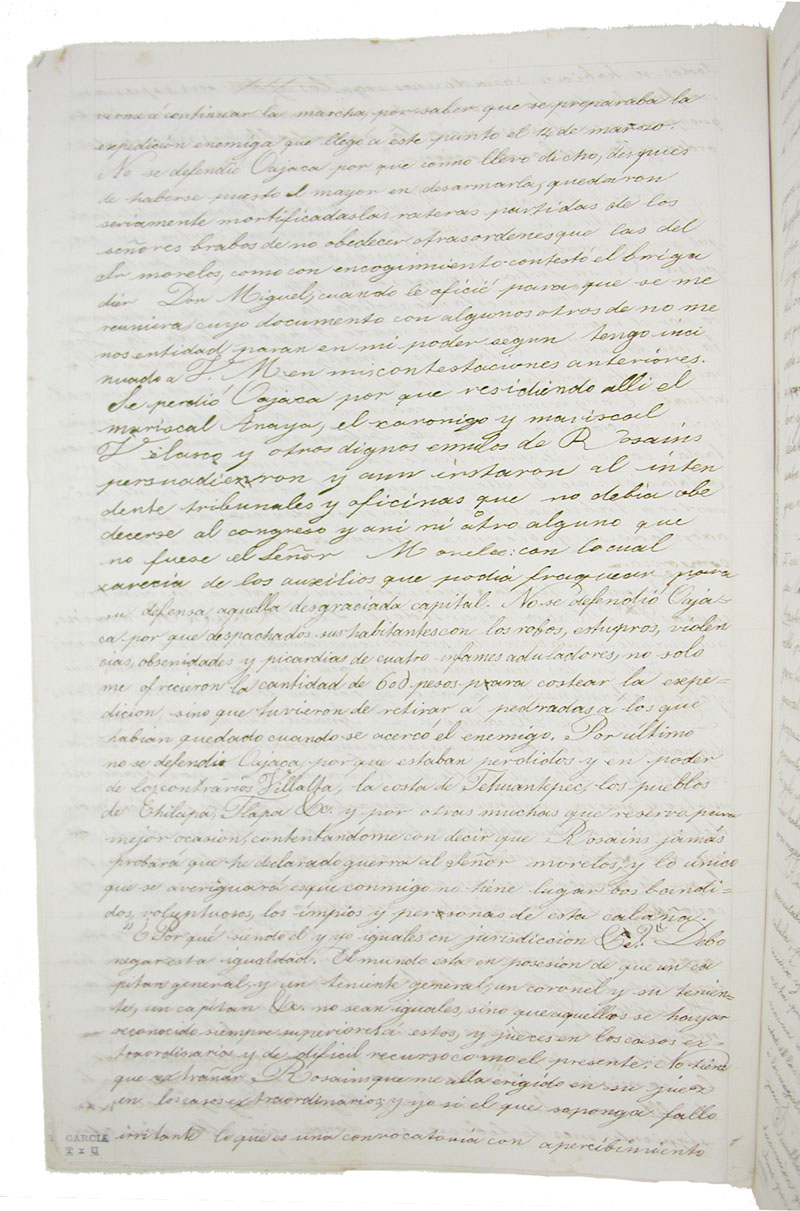 verme á continuar la marcha, por saber que se preparaba la
expedicion enemiga que llegó a este punto el 12 de marzo.
No se defendio Oajaca por que como llevo dicho, despues
de haberse puesto el mayor en desarmarla, quedaron
seriamente mortificadas las rateras partidas de los
señores brabos de no obedecer otras ordenes que las del
Sr morelos, como con encogimiento contestó el briga
dier Don Miguel, cuando le oficié para que se me
reuniera, cuyo documento con algunos otros de no me
nos entidad paran en mi poder segun tengo inci
nuado a V. M. en mis contestaciones anteriores.
Se perdió Oajaca por que residiendo alli el
mariscal Anaya, el canonigo y mariscal
Velasco y otros dignos emulos de Rosains
persuadieron y aun instaron al inten
dente tribunales y oficinas que no debia obe
decerse al congreso y ani ni otro alguno que
no fuese el Señor Morelos: con lo cual
carecia de los auxilios que podia fraquear para
su defensa aquella desgraciada capital. No se defendió Oaja-
ca por que despachados sus habitantes con los robos, estupros, violen
cias, obsenidades y picardias de cuatro infames aduladores, no solo
me ofrecieron la cantidad de 600 pesos para costear la espe-
dicion, sino que tuvieron de retirar á pedradas á los que
habian quedado cuando se acercó el enemigo. Por ultimo
no se defendio Oajaca, por que estaban perdidos y en poder
de los contrarios Villalta, la costa de Tehuantepec, los pueblos
de Chilapa, Tlapa &c. y por otras muchas que reservo para
mejor ocasion, contentandome con decir que Rosains jamás
probara que he declarado guerra al señor morelos, y lo único
que se averiguará es que conmigo no tiene lugar los bandi-
dos, voluptuosos, los impios y personas de esta calaña.
" ¿Por qué siendo el y yo iguales en jurisdiccion &c.? Debo
negar esta igualdad. El mundo esta en posesion de que un ca
pitan general, y un teniente general, un coronel y su tenien-
te, un capitan &c. no sean iguales, sino que aquellos se hayan
reconocido siempre superiores á estos, y jueces en los casos ex-
traordinarios y de dificil recurso como el presente. No tiene
que extrañar Rosains que me alla erigido en su juez
en los casos extraordinarios, y yo si el que suponga fallo
irritante lo que es una convocatoria con apercibimiento
GARCIA